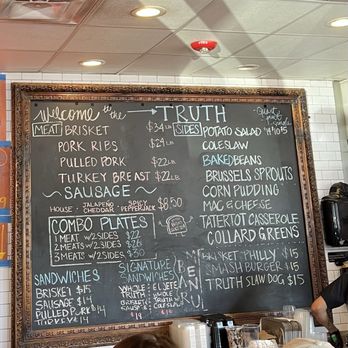 Welcome to the → TRUTH
MEAT BRISKET $34LB
PORK RIBS $29LB
PULLED PORK $22LB
TURKEY BREAST $22LB
SAUSAGE
HOUSE · JALAPEÑO CHEDDAR · SPICY PEPPERJACK $8.50
COMBO PLATES
1 MEAT W/2 SIDES $22
2 MEATS W/2 SIDES $26
3 MEATS W/2 SIDES $30
SANDWICHES
BRISKET $15
SAUSAGE $14
PULLED PORK $14
TURKEY $14
SIGNATURE
SANDWICHES
WHOLE TRUTH
BRISKET
SAUSAGE
$16
EL SETE
WHOLE TRUTH
COLESLAW
$16
SIDES POTATO SALAD
COLESLAW
BAKED BEANS
BRUSSELS SPROUTS
CORN PUDDING
MAC & CHEESE
TATERTOT CASSEROLE
COLLARD GREENS
MENU
BRISKET PHILLY $15
SMASH BURGER $15
TRUTH SLAW DOG $15